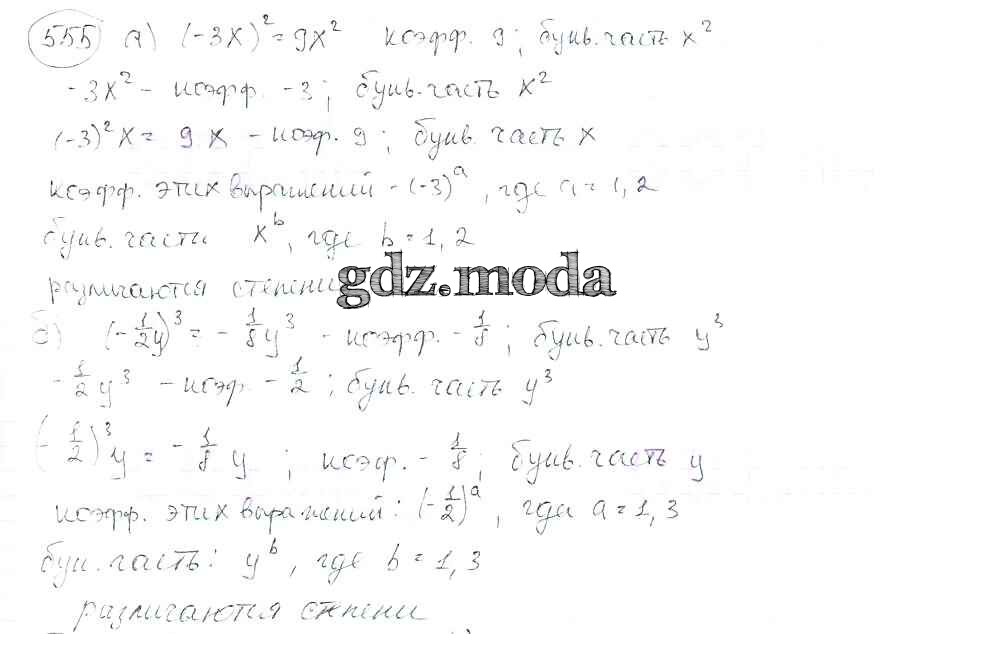 555 а) (-3x)² = 9x² коэфф. 9; букв. часть x²
-3x² - коэфф. -3; букв. часть x²
(-3)²x = 9x - коэф. 9; букв. часть x
коэфф. этих выражений - (-3)ᵃ, где a = 1, 2
букв. части xᵇ, где b = 1, 2
различаются степени
gdz.moda
б) (-1/2y)³ = -1/8y³ - коэфф. -1/8; букв. часть y³
-1/2y³ - коэф. -1/2; букв. часть y³
(-1/2)³y = -1/8y; коэф. -1/8; букв. часть y
коэфф. этих выражений: (-1/2)ᵃ, где a = 1, 3
бук. часть: yᵇ, где b = 1, 3
различаются степени